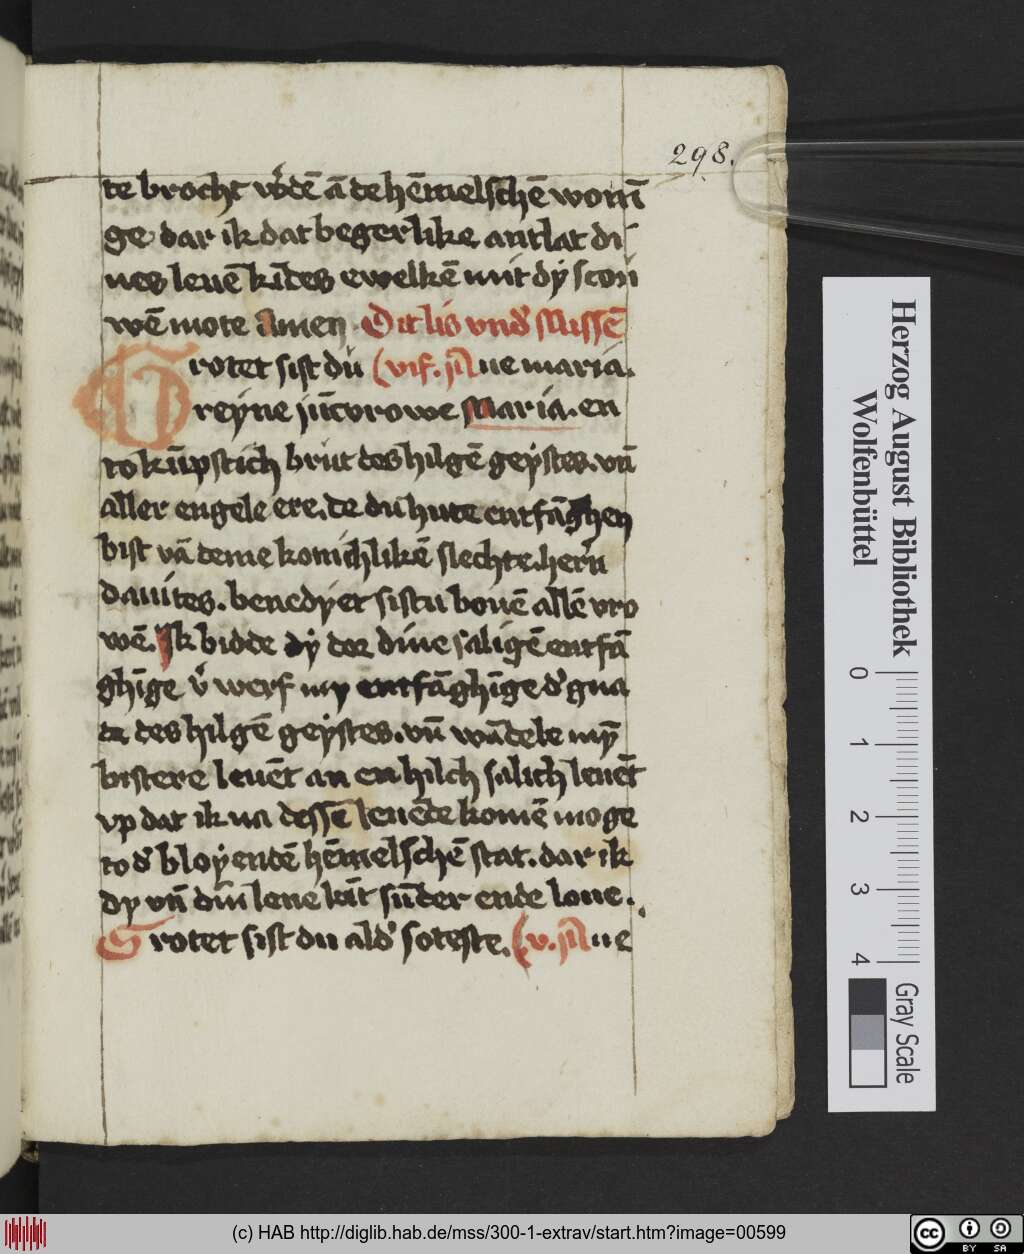 298.
te brocht wͦdē ā de hēmelschē wonī
ge dar ik dat begerlike antlat di
nes leuē kīdes ewelkē mit dy scou
wē mote Amen Dit lis vnd' Missē
Grotet sist du (vif. m Aue maria.
reyne jūcvrowe Maria. en
to kūpstich brut des hilgē geystes. vn̄
aller engele ere. de du hute entfāghen
bist vā deme konichlikē slechte. hern
dauites. benedyet sistu bouē allē vro
wē. Ik bidde dy dor dine saligē entfā
ghīge v' werf my entfāghīge d' gna
da des hilgē geystes. vn̄ wādele mȳ
bistere leuēt an en hilch salich leuēt
vp dat ik na dessē leuēde komē moge
to d' bloyendē hēmelschē stat. dar ik
dy vn̄ din leue kīt sūder ende loue.
Grotet sist du ald' soteste. (v. m Aue
Herzog August Bibliothek
Wolfenbüttel
0 1 2 3 4
Gray Scale
(c) HAB http://diglib.hab.de/mss/300-1-extrav/start.htm?image=00599
cc BY SA